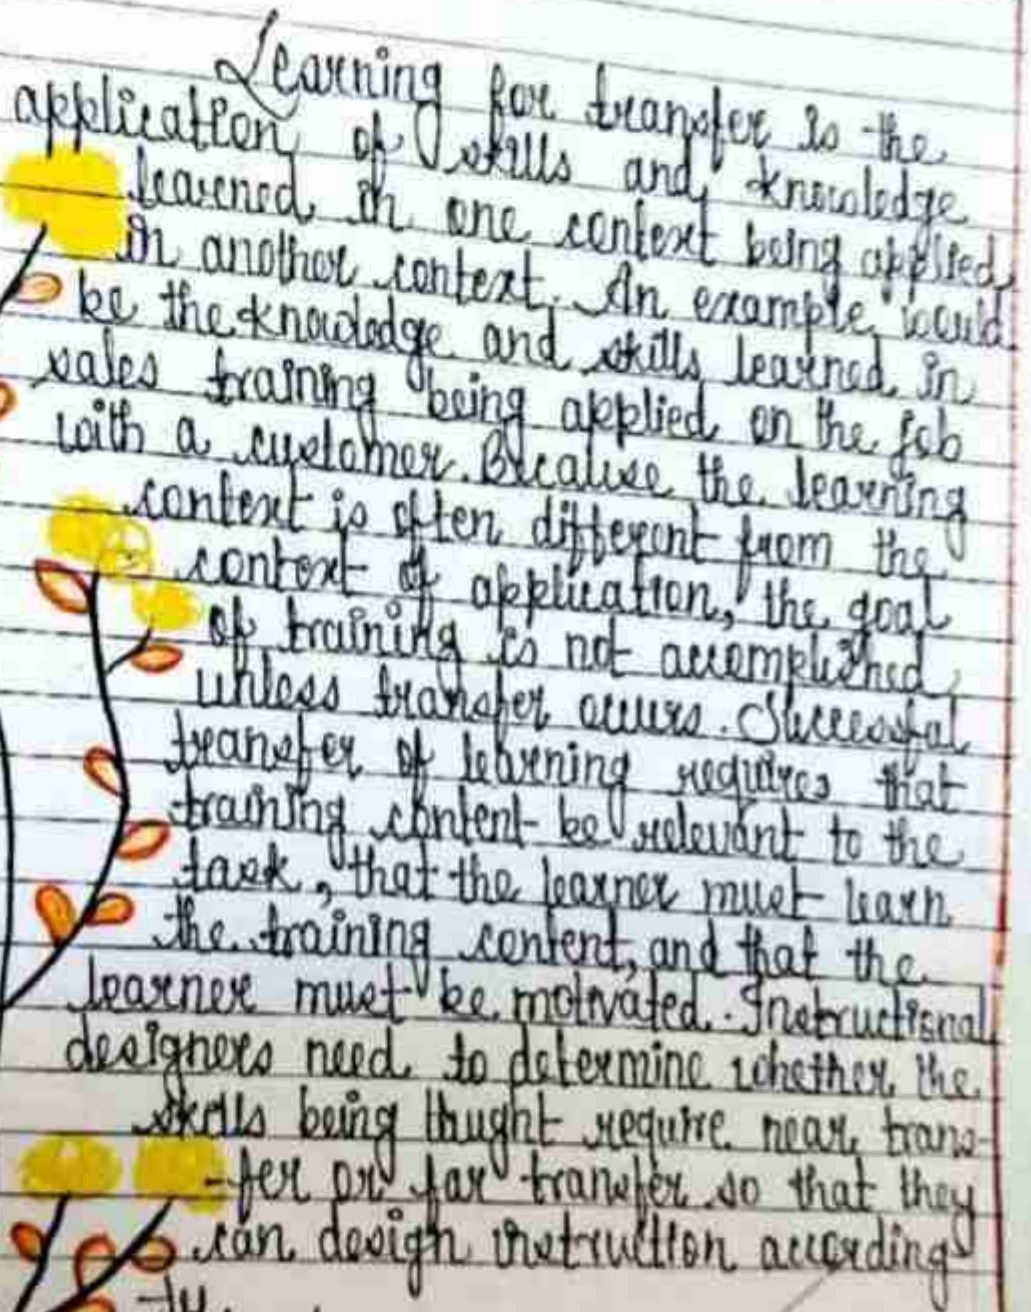 Learning for transfer is the
application of skills and knowledge
learned in one context being applied
in another context. An example would
be the knowledge and skills learned in
sales training being applied on the job
with a customer. Because the learning
context is often different from the
context of application, the goal
of training is not accomplished
unless transfer occurs. Successful
transfer of learning requires that
training content be relevant to the
task, that the learner must learn
the training content, and that the
learner must be motivated. Instructional
designers need to determine whether the
skills being thught require near trans-
-fer or far transfer so that they
can design instruction according